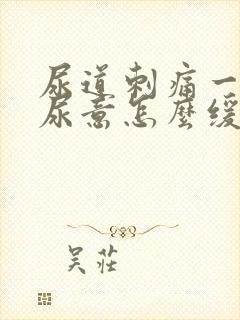 尿道刺痛一
尿意怎麼緩
吴莊